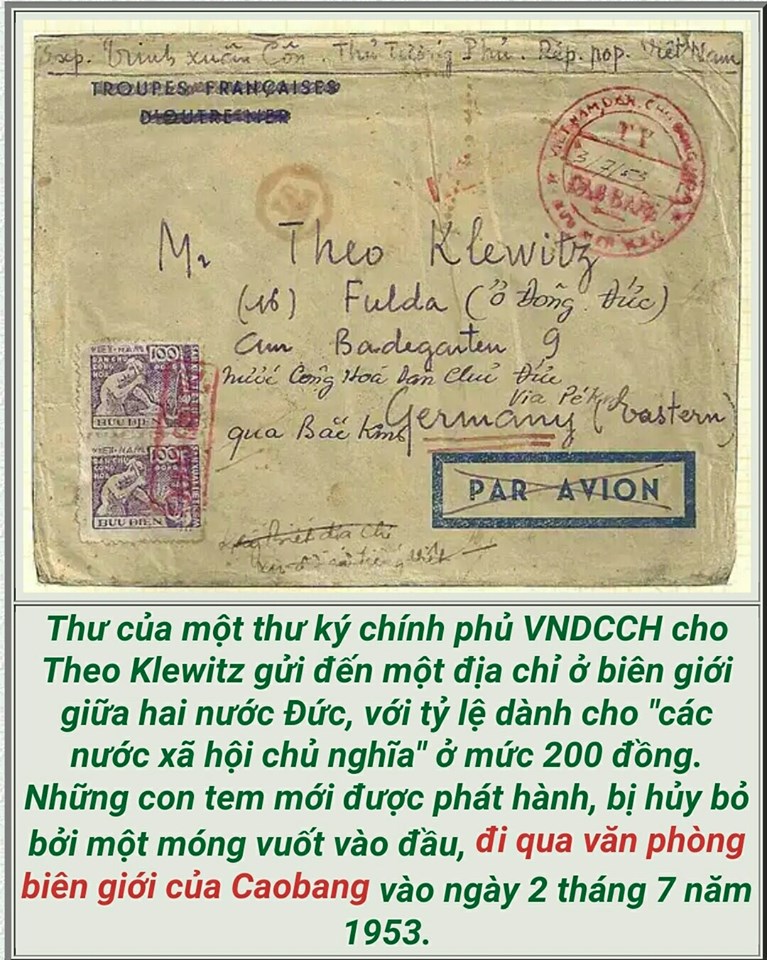 Exp. Trịnh Xuân Côn. Thủ Tướng Phủ. Rép. pop. Việt Nam
TROUPES FRANÇAISES
D'OUTRE-MER
VIET NAM DAN CHU CONG HOA
3/7/53
CAO BANG
Mr Theo Klewitz
(16) Fulda (ở Đông Đức)
am Badegarten 9
nước Cộng Hoà Dân Chủ Đức
Via Pékin
qua Bắc Kinh Germany (Eastern)
PAR AVION
VIET-NAM 100
DAN CHU
CONG
HOA
BUU ĐIEN
VIET-NAM 100
DAN CHU
CONG
HOA
BUU ĐIEN
Thư của một thư ký chính phủ VNDCCH cho
Theo Klewitz gửi đến một địa chỉ ở biên giới
giữa hai nước Đức, với tỷ lệ dành cho "các
nước xã hội chủ nghĩa" ở mức 200 đồng.
Những con tem mới được phát hành, bị hủy bỏ
bởi một móng vuốt vào đầu, đi qua văn phòng
biên giới của Caobang vào ngày 2 tháng 7 năm
1953.